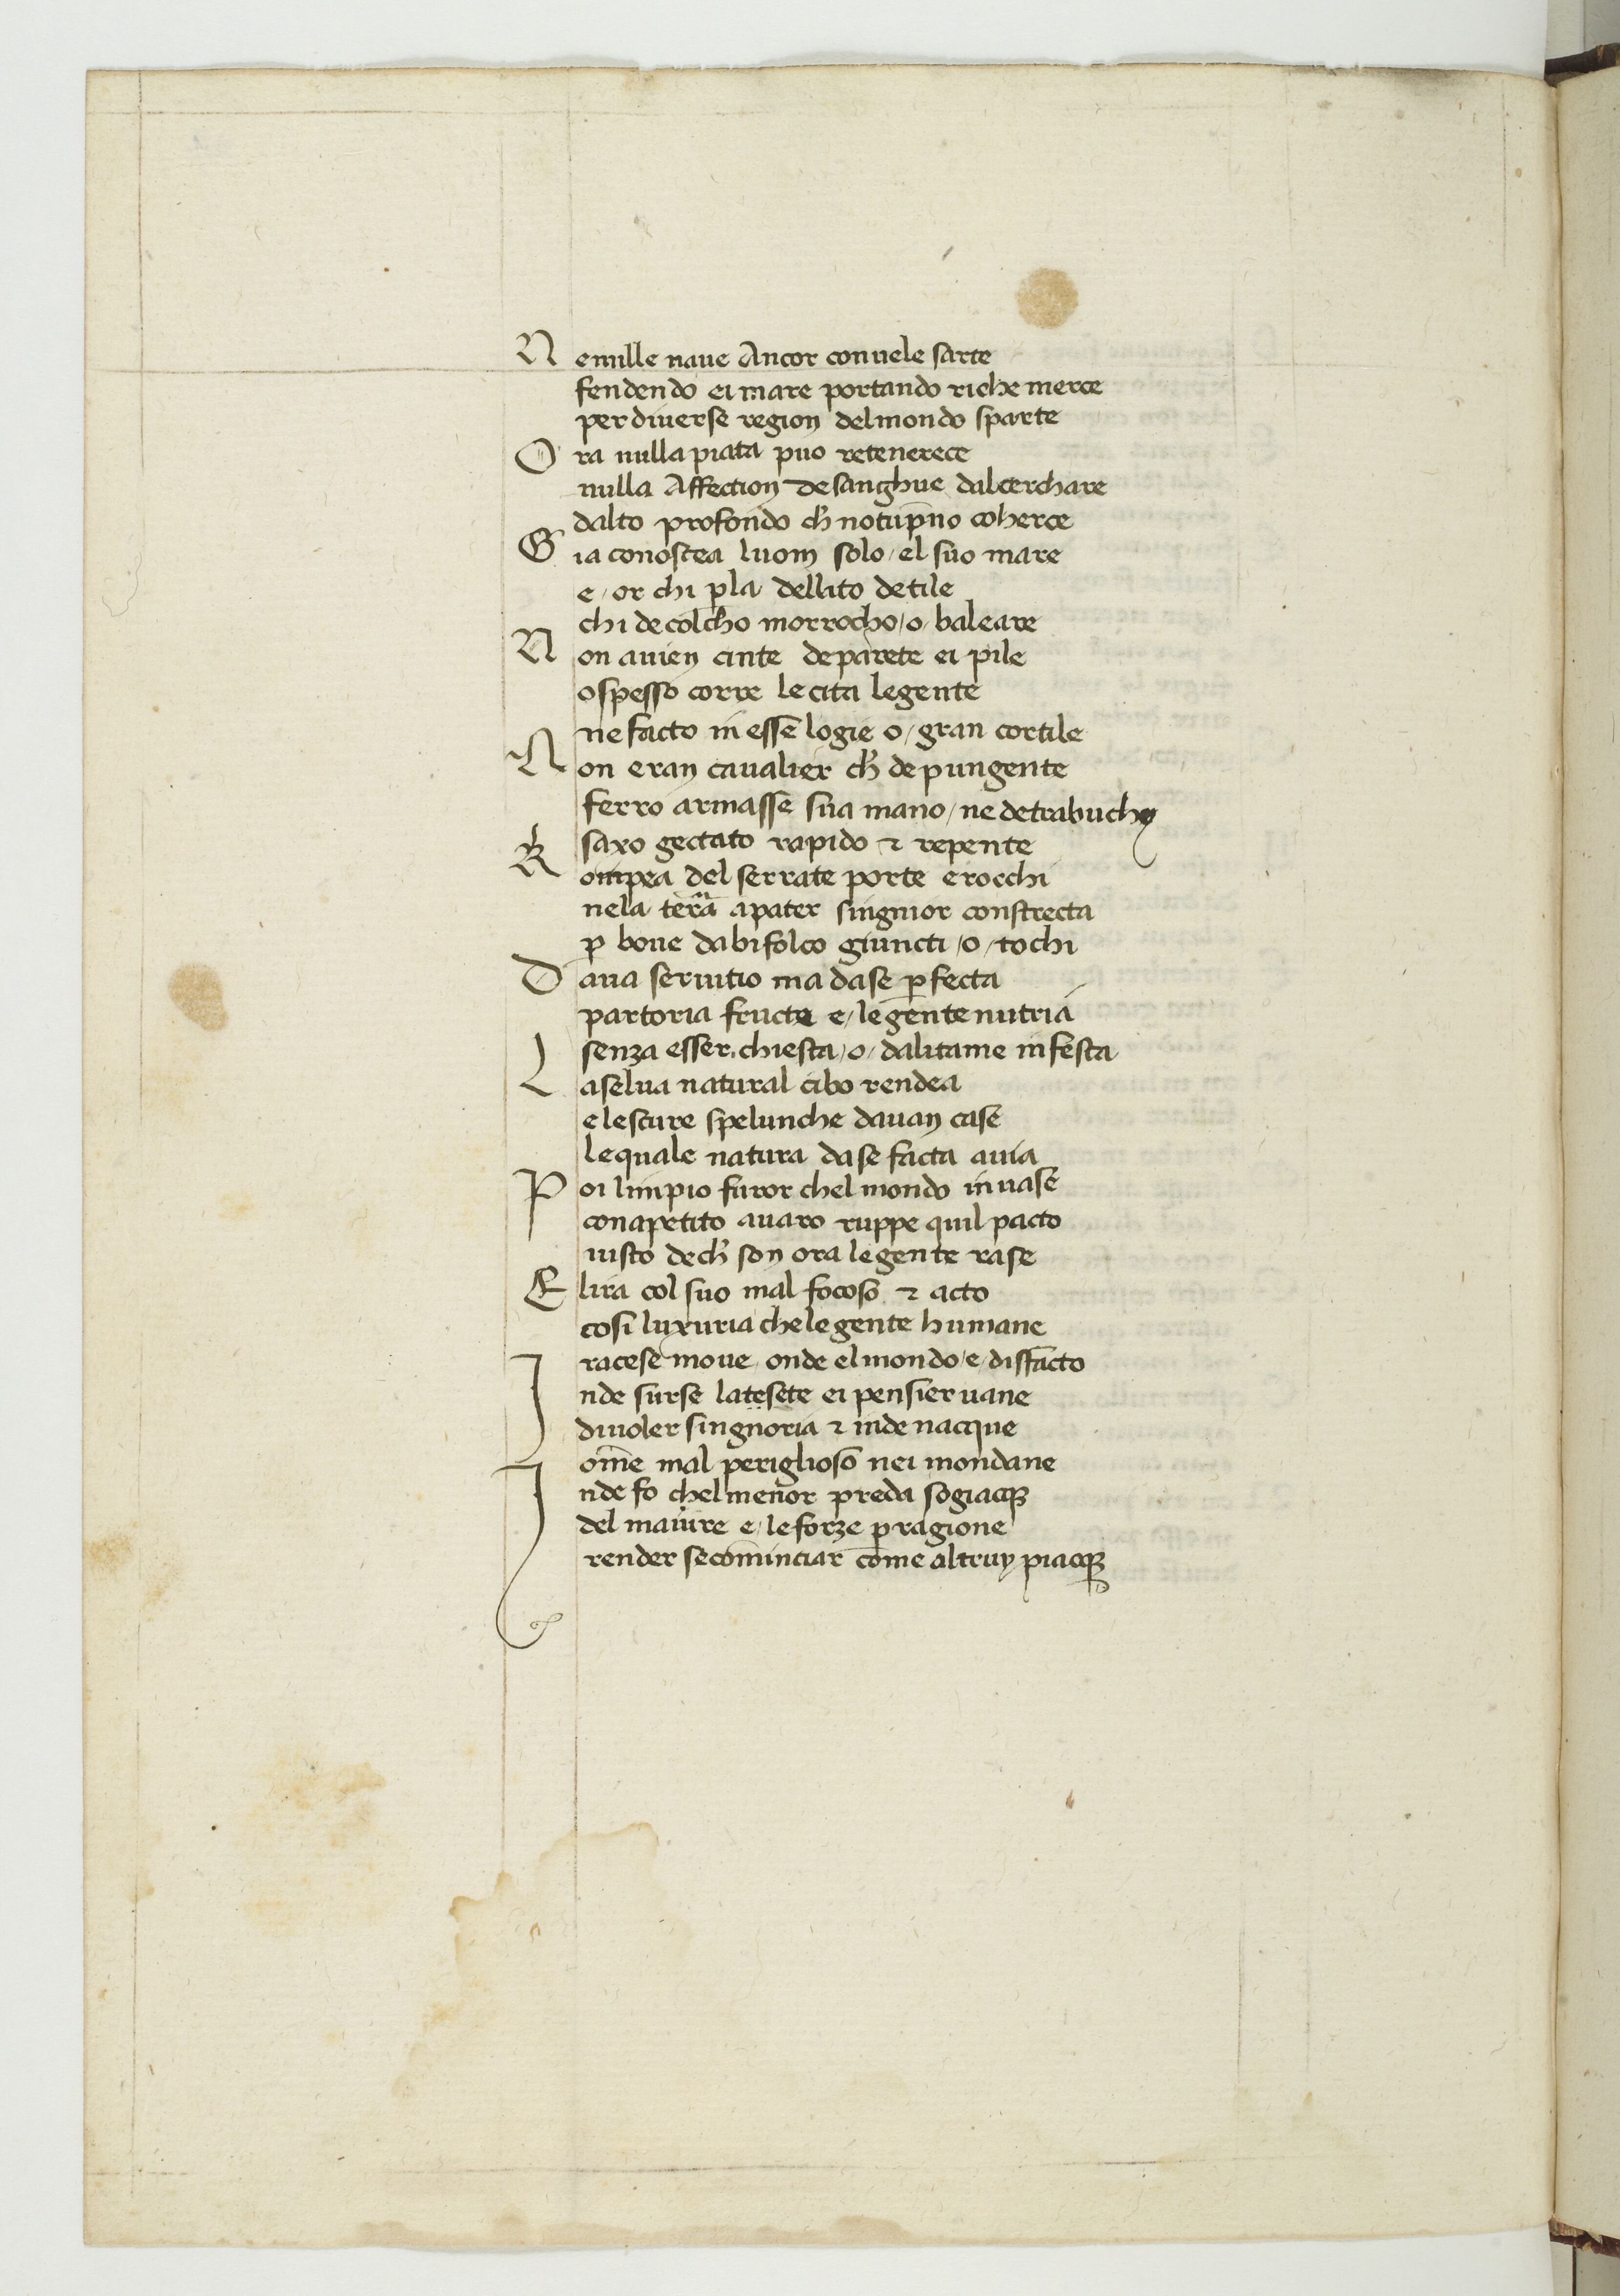 N emille naue Ancor conuele sarte
fendendo ei mare portando riche merce
per diuerse region delmondo sparte
O ra nulla piata puo retenerece
nulla Affection de sanghue dalcerchare
dalto profondo ch̄ notup̄no coherce
G ia conoscea luom solo / el suo mare
e / or chi p̱la dellito detile
chi de colcho morrocho / o / baleare
N on auien cinte de parete ei pile
o spesso corre le cita legente
ne facto in essē logie o / gran cortile
N on eran caualier ch̄ de pungente
ferro armasse sua mano / ne detrabuchy
saxo gectato rapido ⁊ repente
R ompea del serrate porte e rocchi
nela terā a pater singnior constrecta
ꝑ boue dabifolco giuncti / o / tochi
D aua seruitio ma dase ꝑfecta
partoria fructe e / le gente nutria
senza esser chiesta / o / dalitame infesta
L aselua natural cibo rendea
e lescure spelunche dauan case
lequale natura dase facta auia
P oi limpio furor chel mondo inuase
conapetito auaro ruppe quil pacto
iusto dech̄ son ora le gente rase
E lira col suo mal focoso ⁊ acto
cosi luxuria che le gente humane
racese moue onde el mondo / e / disfacto
I nde surse latesete ei pensier uane
diuoler singnoria ⁊ inde nacque
om̄e mal periglioso nei mondane
I nde fo chel menor preda sogiacqꝫ
del maiure e / le forze ꝑ ragione
render se cominciar come altruy piacqꝫ